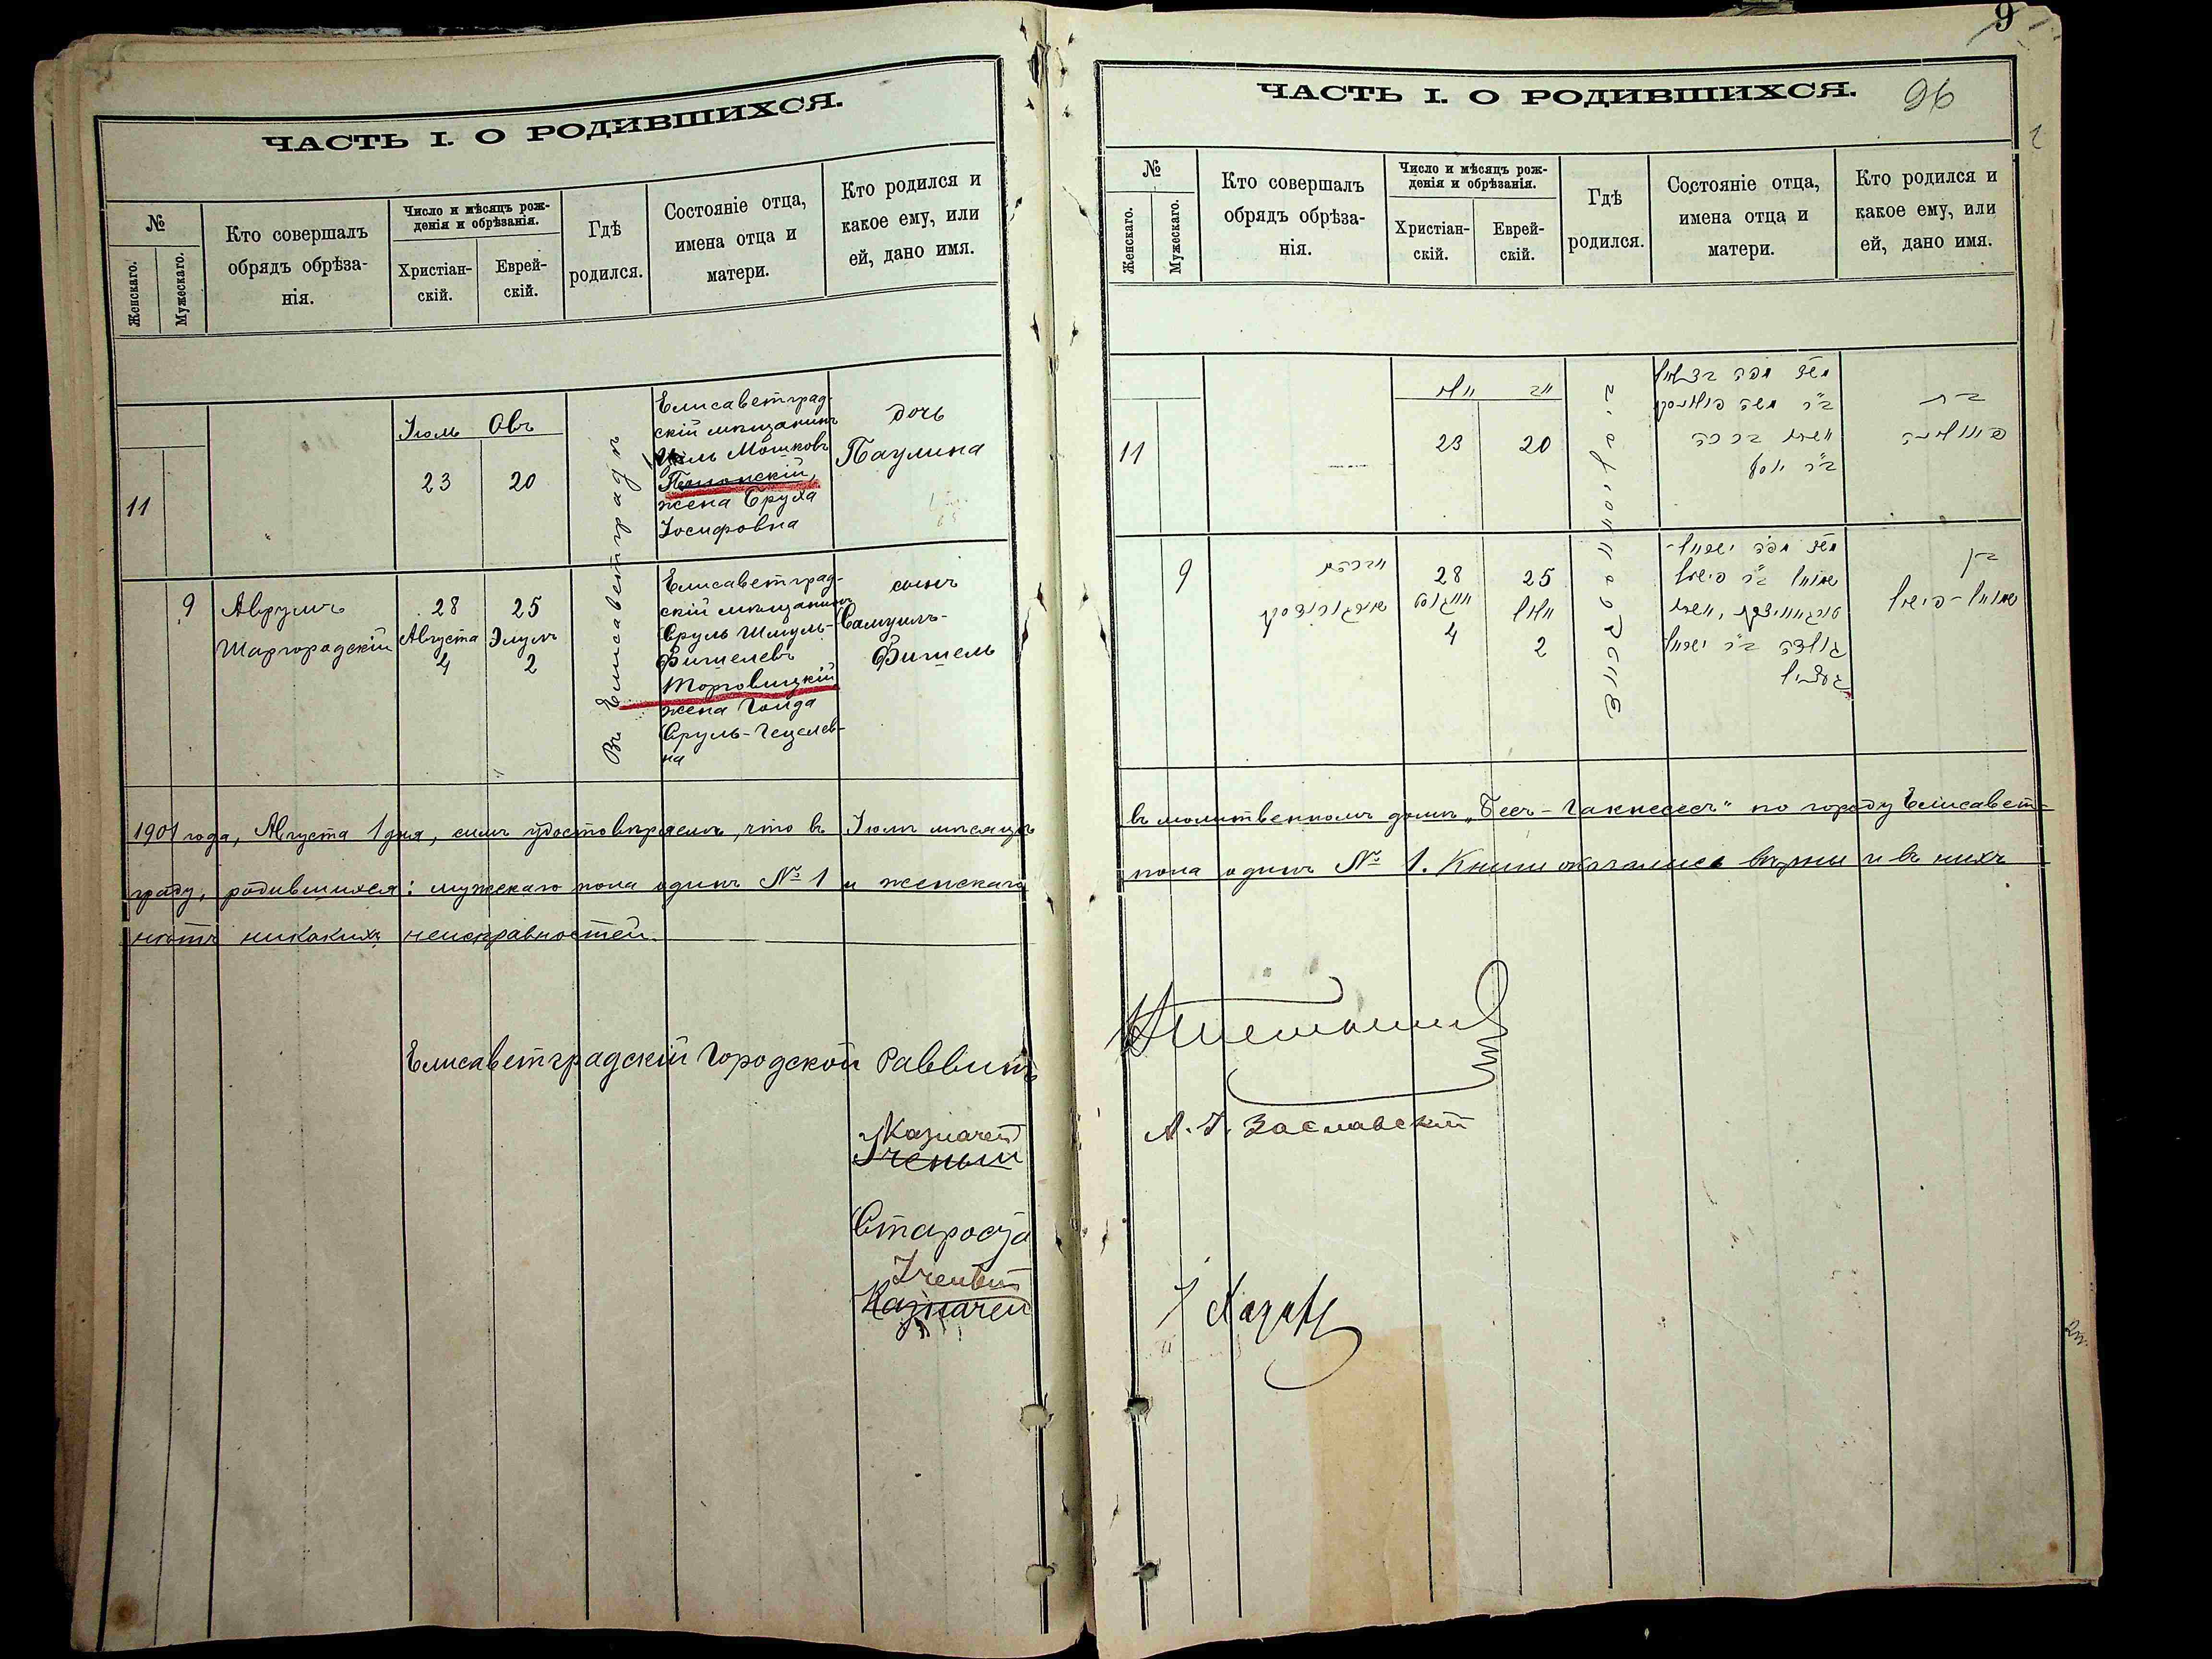 ЧАСТЬ I. О РОДИВШИХСЯ.
№
Женскаго.
Мужескаго.
Кто совершалъ
обрядъ обрѣза-
нія.
Число и мѣсяцъ рож-
денія и обрѣзанія.
Христіан-
скій.
Еврей-
скій.
Гдѣ
родился.
Состояніе отца,
имена отца и
матери.
Кто родился и
какое ему, или
ей, дано имя.
11
Іюль Овъ
23 20
Въ Елисаветградѣ
Елисаветград-
скій мѣщанинъ
Мошковъ
жена Бруха
Іосифовна
дочь
Паулина
9
Аврумъ
Шаргородскій
28 25
Августа Элулъ
4 2
Елисаветград-
скій мѣщанинъ
Сруль Шмуль-
Фишелевъ
Торговицкій
жена Голда
Сруль-Гецелев-
на
сынъ
Самуилъ-
Фишель
1901 года, Августа 1 дня, симъ удостовѣряемъ, что въ Іюлѣ мѣсяцѣ
граду, родившихся: мужскаго пола одинъ № 1 и женскаго
нѣтъ никакихъ неисправностей.
Елисаветградскій Городской Раввинъ
Казначей
Ученый
Староста
Ученый
Казначей
9
96
ЧАСТЬ I. О РОДИВШИХСЯ.
№
Женскаго.
Мужескаго.
Кто совершалъ
обрядъ обрѣза-
нія.
Число и мѣсяцъ рож-
денія и обрѣзанія.
Христіан-
скій.
Еврей-
скій.
Гдѣ
родился.
Состояніе отца,
имена отца и
матери.
Кто родился и
какое ему, или
ей, дано имя.
11
יולי אב
23 20
ב"ר משה
אשתו ברכה
ב"ר יוסף
בת
פאולינה
9
אברהם
שארגאראדסקי
28 25
אויגוסט אלול
4 2
ישראל-
שמואל ב"ר פישל
אשתו
גולדה ב"ר ישראל
געציל
בן
שמואל-פישל
въ молитвенномъ домѣ „Бесъ-Гакнесесъ“ по городу Елисавет-
пола одинъ № 1. Книги оказались вѣрны и въ нихъ
А. І. Заславскій